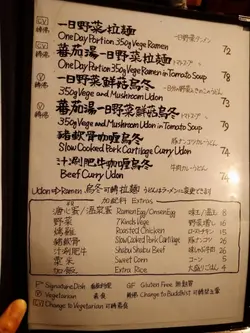 一日野菜拉麵
One Day Portion 350g Vege Ramen 72
蕃茄湯一日野菜拉麵
One Day Portion 350g Vege Ramen in Tomato Soup 78
一日野菜鮮菇烏冬
350g Vege and Mushroom Udon 73
蕃茄湯一日野菜鮮菇烏冬
350g Vege and Mushroom Udon 79
豬軟骨咖喱烏冬
Slow Cooked Pork Cartilage Curry Udon 74
汁涮肥牛咖喱烏冬
Beef Curry Udon 74
Udon⇒Ramen 烏冬可轉拉麵
加配料 Extras
溏心蛋/溫泉蛋 Ramen Egg/Onsen Egg 8
野菜 7 Kinds Vege 15
燒雞 Roasted Chicken 14
豬軟骨 Slow Cooked Pork Cartilage 16
汁涮肥牛 Shabu Shabu Beef 16
粟米 Sweet Corn コーン 5
加飯 Extra Rice 4
Signature Dish GF Gluten Free 無麩質
Vegetarian 素食 Change to Buddhist 可轉
Change to Vegetarian 可轉素食